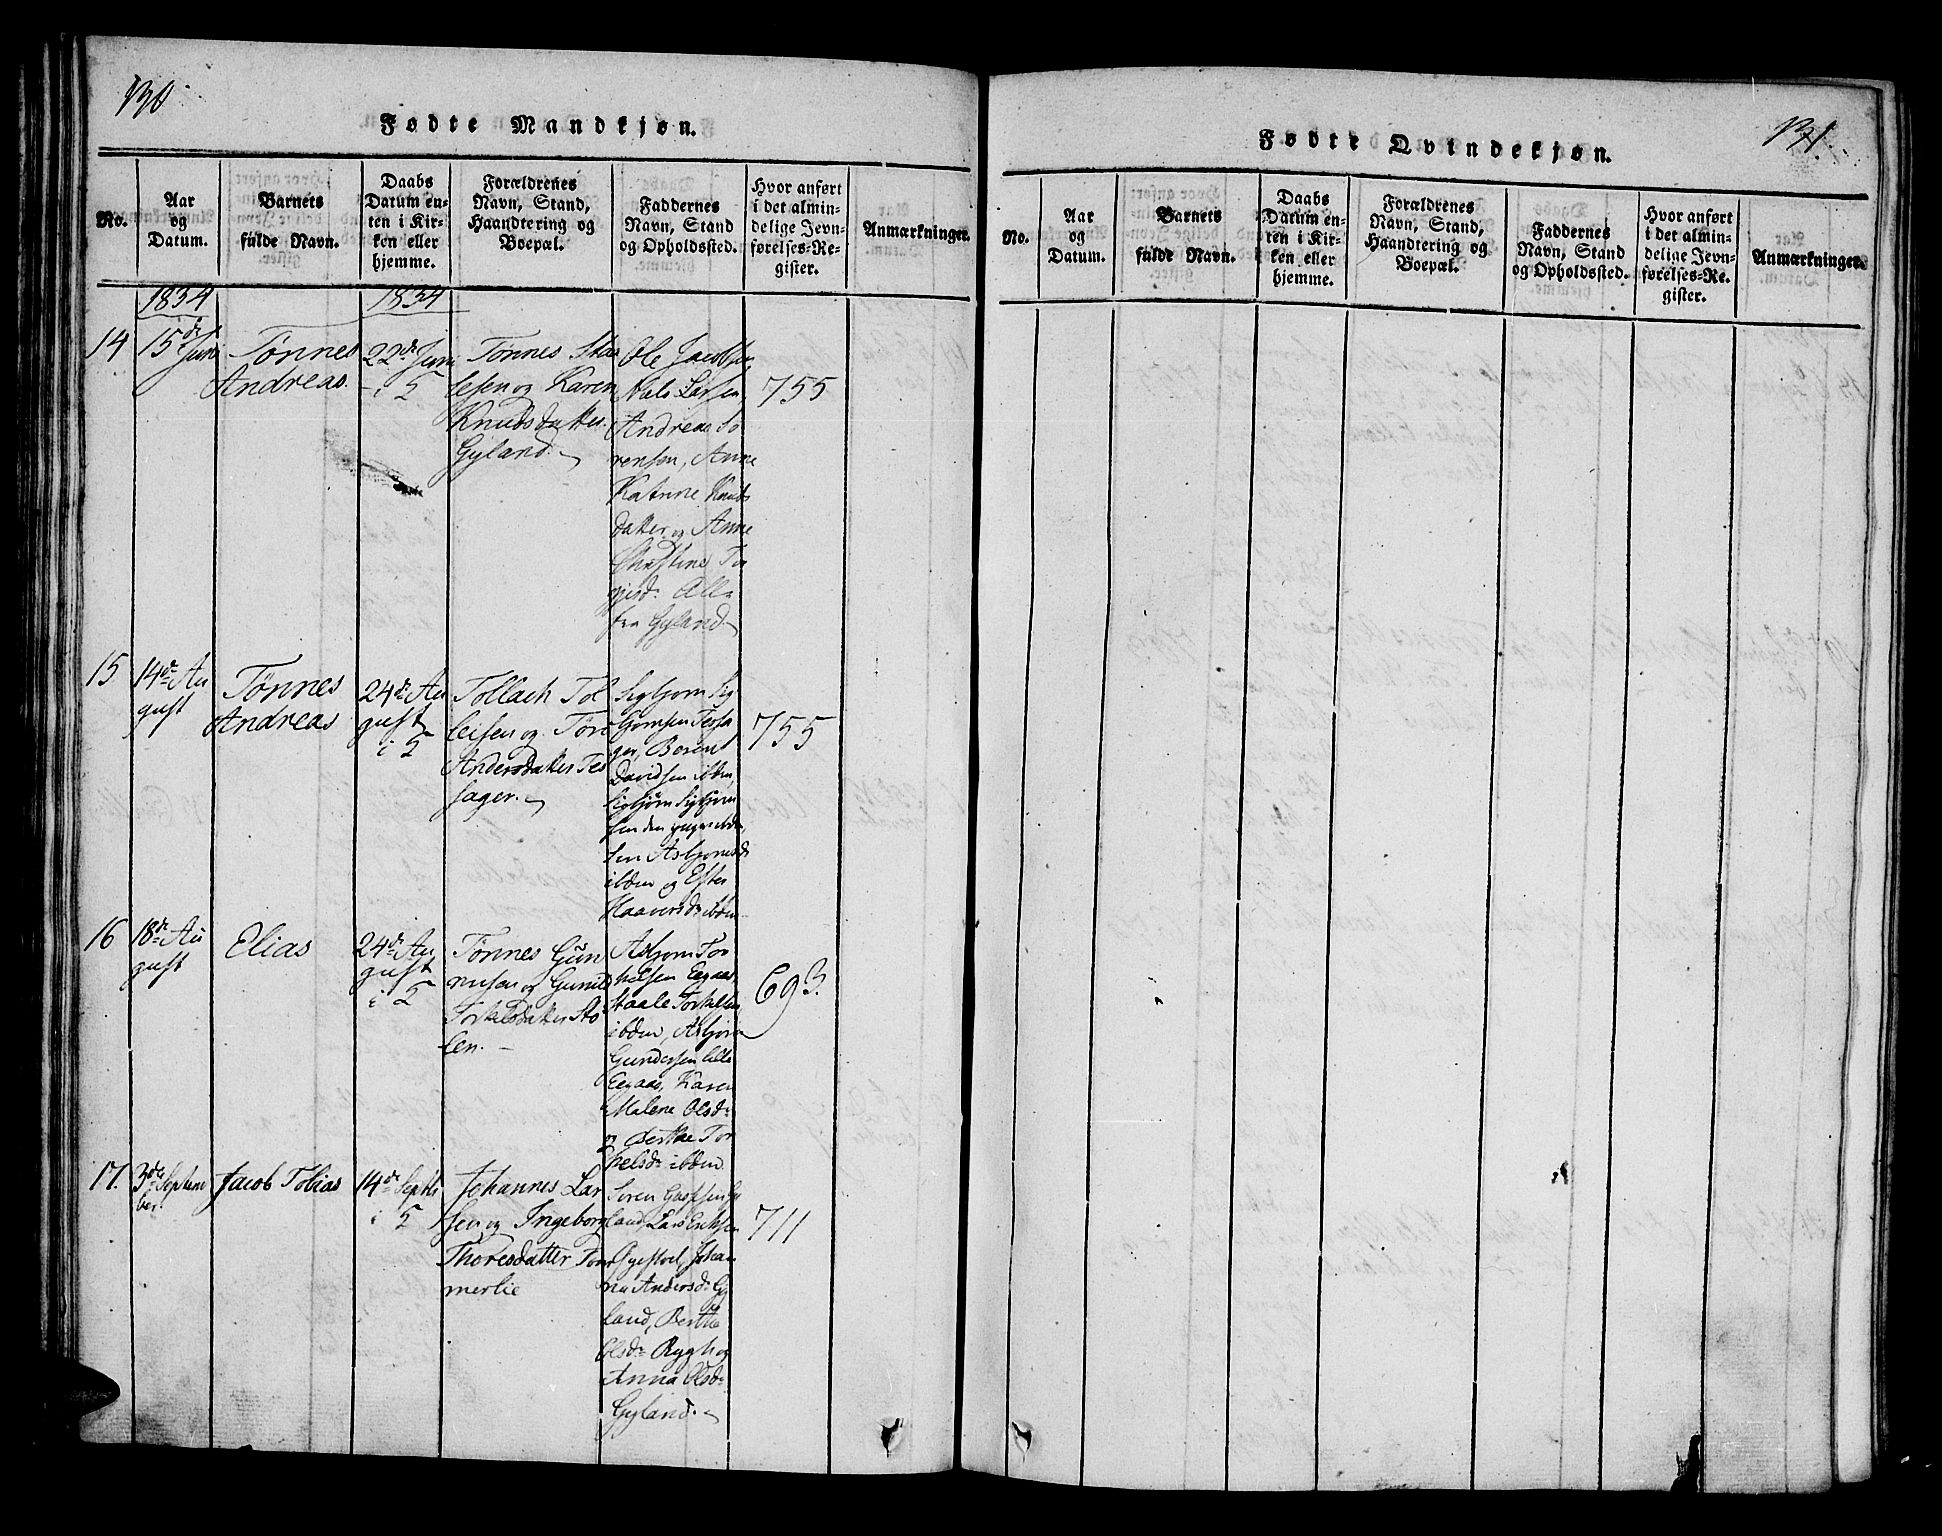 130
Fødte Mandkjøn.
No.
Aar
og
Datum.
Barnets
fulde Navn.
Daabs
Datum en-
ten i Kir-
ken eller
hjemme.
Forældrenes
Navn, Stand,
Haandtering og
Boepæl.
Faddernes
Navn, Stand
og Opholdssted.
Hvor anført
i det almin-
delige Jevn-
førelses-Re-
gister.
Anmærkninger.
1834
1834
14
15de Juni
Tønnes
Andreas.
22de Juni
i
Tønnes Staa
lesen og Karen
Knudsdatter
Gyland.
Ole Jacobsen
Niels Larsen
Andreas So
rensen, Anne
Katrine Knuds
datter og Anne
Christine Tor
gjersd: Alle
fra Gyland
755
15
14de Au
gust
Tønnes
Andreas
24de Au
gust
i
Tollach Tol
leisen og Tøn
Andersdatter Tes
sager.
Sigbjørn Sig
bjørnsen Tessa
ger, Berent
Davidsen ibdm,
Sigbjørn Sigbjørn
sen den yngre ibdm,
Siri Asbjørnsd:
ibdm og Ester
Haaversd: ibdm
755
16
18de Au
gust
Elias
24de Au
gust
i
Tønnes Gun
nusen og Gunild
Torkelsdatter Sto
len.
Asbjørn Tor
kelsen Eegaas
Staale Torkelsen
ibdm, Asbjørn
Gundersen lille
Eegaas, Karen
Malene Olsd:
og Berthe Tor
kelsd: ibdm
693.
17.
3die Septem
ber.
Jacob Tobias
14de Septbr
i
Johannes Lar
sen og Ingeborg
Thoresdatter Tom
merlie
Søren Gy
land, Lars Eriksen
Johan
na Andersd: Gy
land, Berthe
Olsd: Rygh og
Anna Olsd:
Gyland.
711
131.
Fødte Qvindekjøn.
No.
Aar
og
Datum.
Barnets
fulde Navn.
Daabs
Datum en-
ten i Kir-
ken eller
hjemme.
Forældrenes
Navn, Stand,
Haandtering og
Boepæl.
Faddernes
Navn, Stand
og Opholdssted.
Hvor anført
i det almin-
delige Jevn-
førelses-Re-
gister.
Anmærkninger.